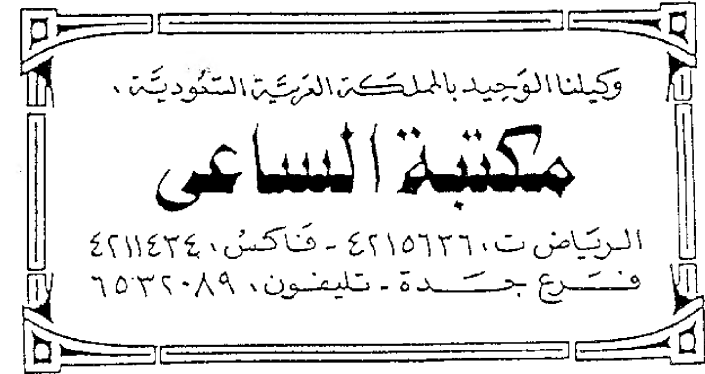 وكيلنا الوَحِيد بالمملكَة العَربيَّة السَّعُوديَّة ،
مكتبة الساعى
الريَاض ت ، ٤٢١٥٦٣٦ - فَاكسُ ، ٤٢١١٤٣٤
فَرع جَدة - تليفون ، ٦٥٣٢٠٨٩